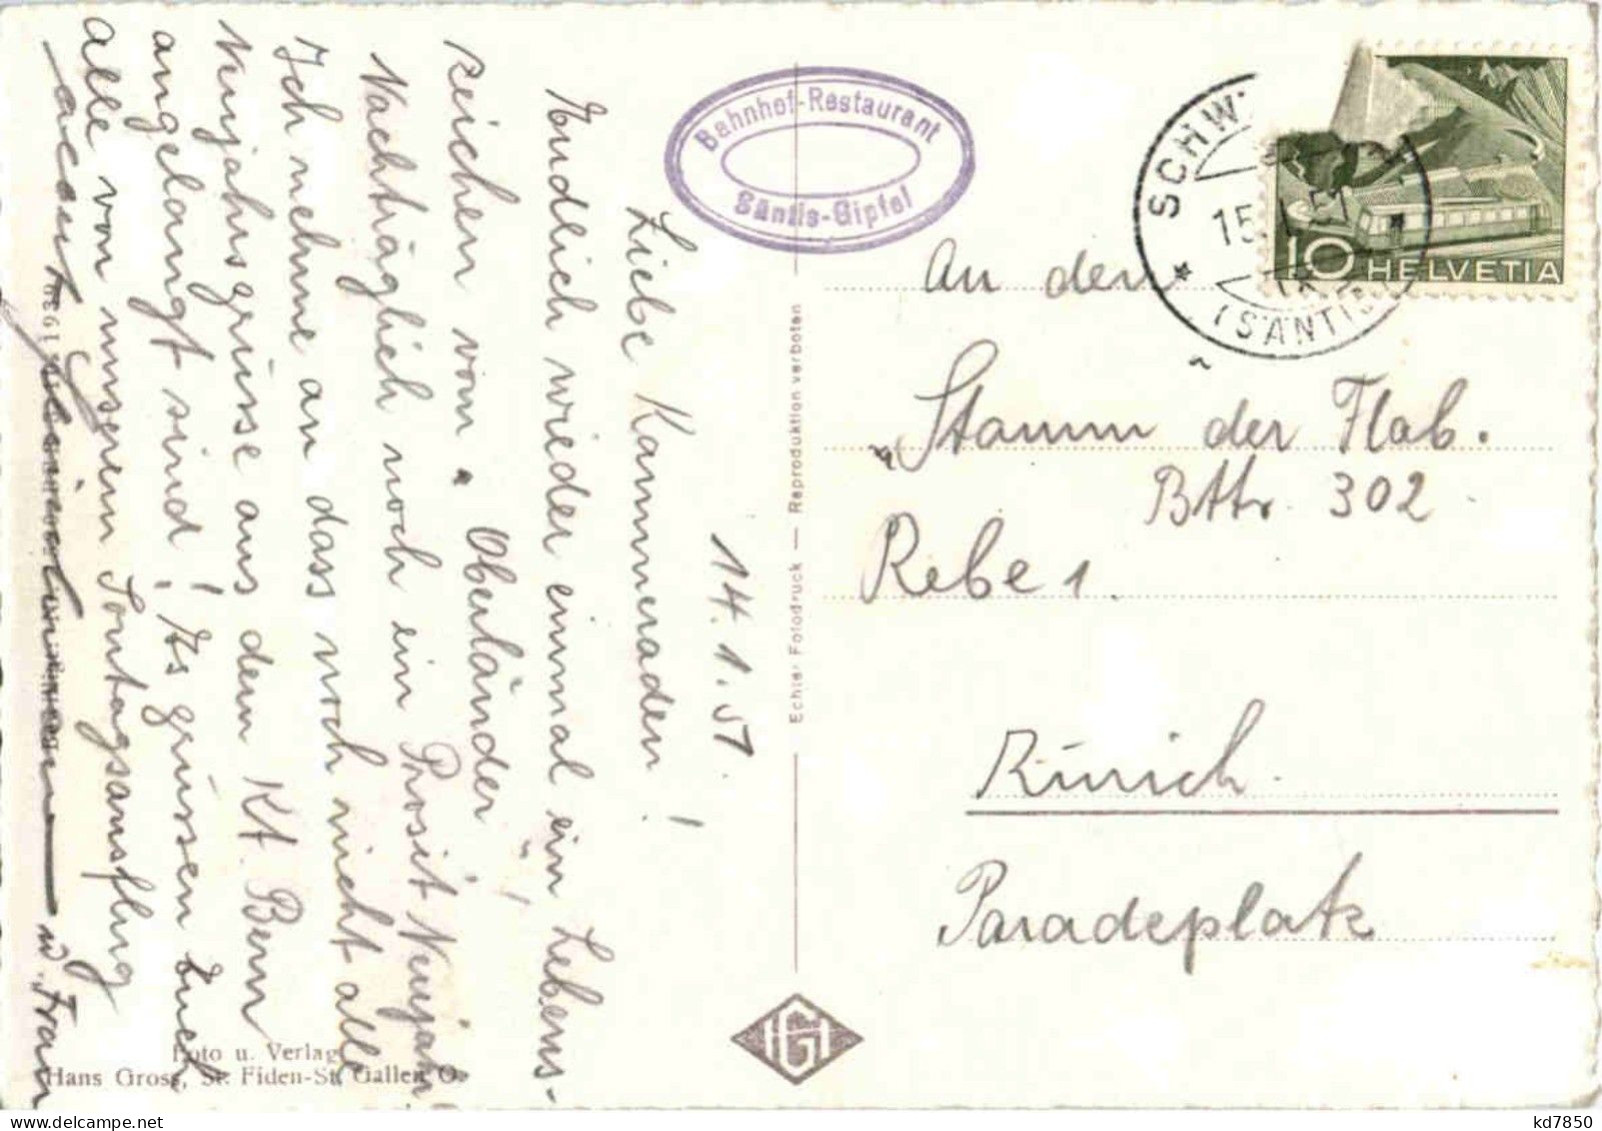 14.1.51.
Liebe Kammeraden!
Endlich wieder einmal ein Lebens-
zeichen vom "Oberländer"!
Nachträglich noch ein Prosit Neujahr!
Ich nehme an dass noch nicht alle
Neujahrsgrüsse aus dem Kt. Bern
angelangt sind! Es grüssen Euch
alle von unserem Sontagsausflug
u. Frau
Bahnhof-Restaurant
Säntis-Gipfel
SCHW
15.
(SÄNTIS)
10 HELVETIA
An den
Stamm der Flab.
Bttr. 302
Rebe 1
Zürich.
Paradeplatz
Echter Fotodruck — Reproduktion verboten
HG
Foto u. Verlag
Hans Gross, St. Fiden-St. Gallen O.
kd7850